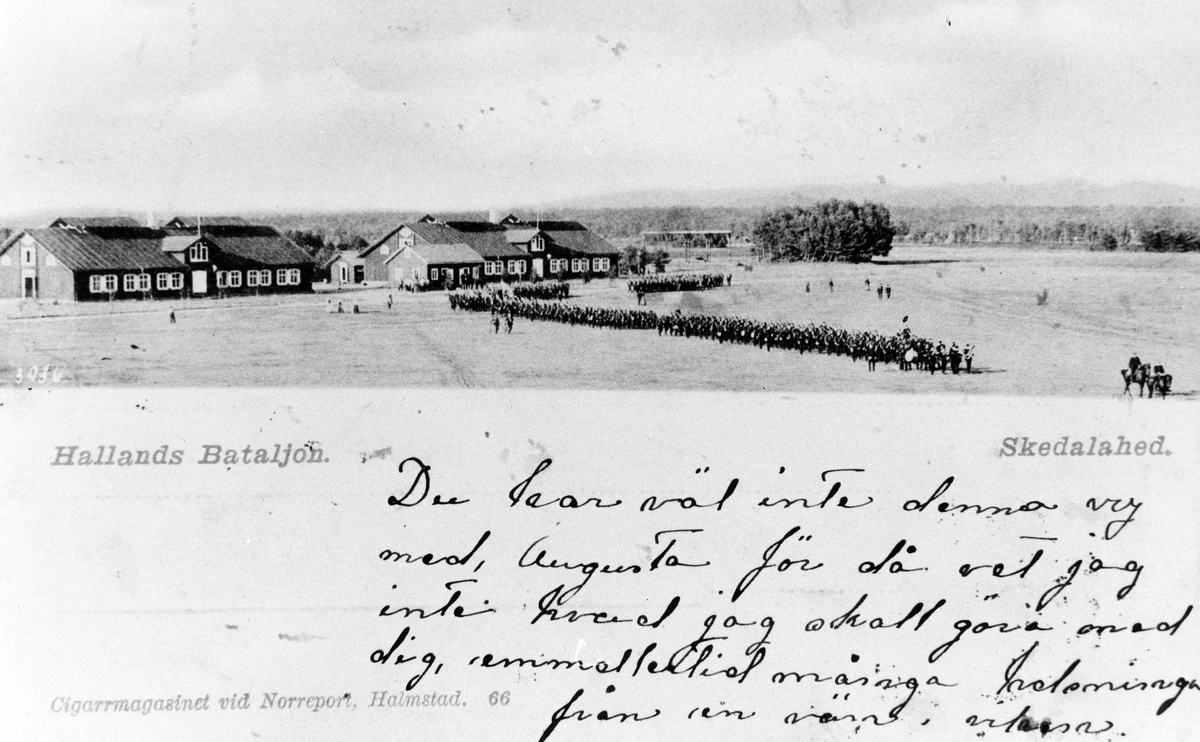 3036
Hallands Bataljon.
Skedalahed.
Du har väl inte denna vy
med, Augusta för då vet jag
inte hvad jag skall göra med
dig, emmellertid många helsninga
från en vän.
Cigarrmagasinet vid Norreport, Halmstad. 66